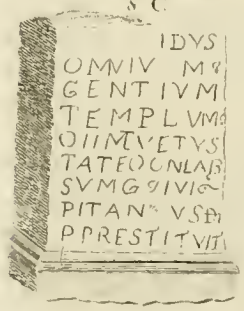 S C
IDVS
OMNIV M
GENTIVM
TEMPLVM
OIIMVETVS
TATECONLAB
SVMG IVI
PITAN VS
PPRESTITVIT